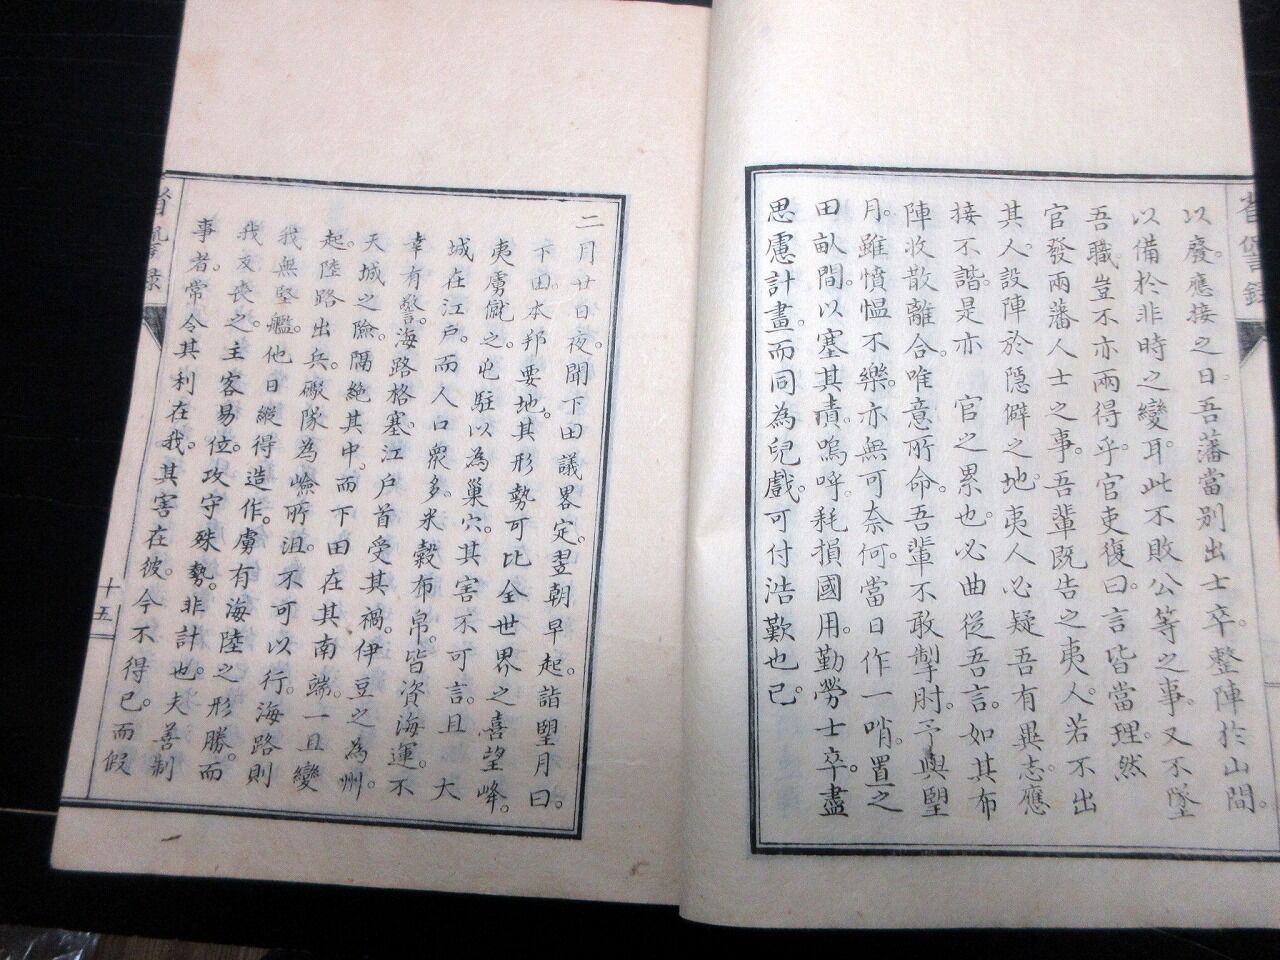 省諐録
以廢。應接之日。吾藩當別出士卒。整陣於山間。
以備於非時之變耳。此不敗公等之事。又不墜
吾職。豈不亦兩得乎。官吏復曰。言皆當理。然
官發兩藩人士之事。吾輩既告之夷人。若不出
其人。設陣於隱僻之地。夷人必疑吾有異志。應
接不諧。是亦　官之累也。必曲從吾言。如其布
陣收散離合。唯意所命。吾輩不敢掣肘。予與望
月。雖憤愠不樂。亦無可奈何。當日作一哨。置之
田畝間。以塞其責。嗚呼。耗損國用。勤勞士卒。盡
思慮計畫。而同為兒戲。可付浩歎也已。
二月廿日夜。聞下田議畧定。翌朝早起。詣望月曰。
下田。本邦要地。其形勢可比全世界之喜望峰。
夷虜僦之屯駐以為巢穴。其害不可言。且　大
城在江戶。而人口衆多。米穀布帛。皆資海運。不
幸有警。海路格塞。江戶首受其禍。伊豆之為州。
天城之險。隔絶其中。而下田在其南端。一旦變
起。陸路出兵。礮隊為嶮所沮。不可以行。海路則
我無堅艦。他日縱得造作。虜有海陸之形勝。而
我反喪之。主客易位。攻守殊勢。非計也。夫善制
事者。常令其利在我。其害在彼。今不得已。而假
省諐録
十五